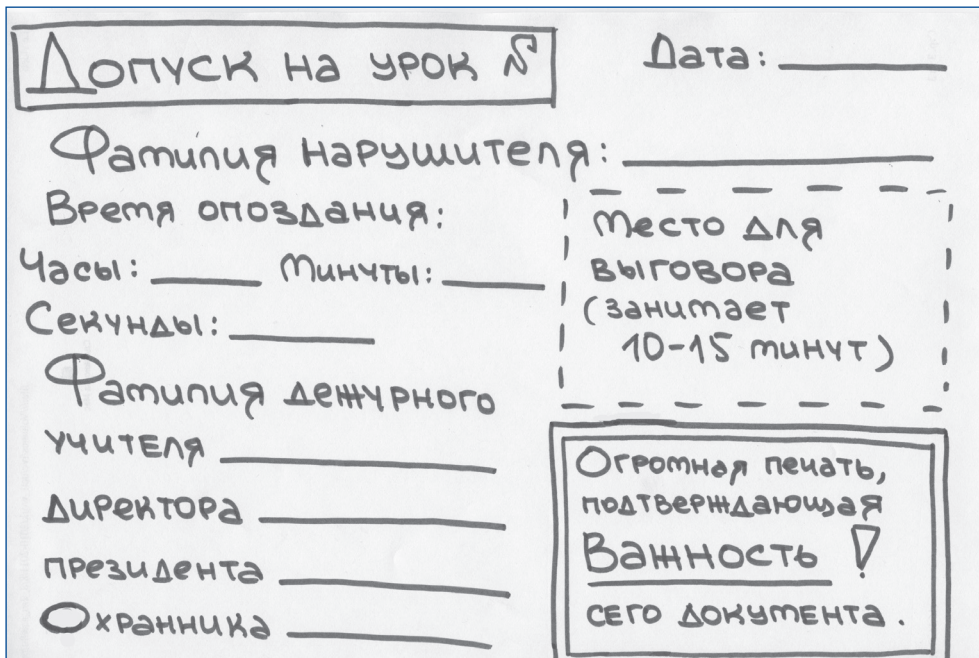 Допуск на урок №
Дата:
Фамилия нарушителя:
Время опоздания:
Часы: Минуты:
Секунды:
Фамилия дежурного
учителя
директора
президента
Охранника
Место для
выговора
(занимает
10-15 минут)
Огромная печать,
подтверждающая
Важность!
сего документа.